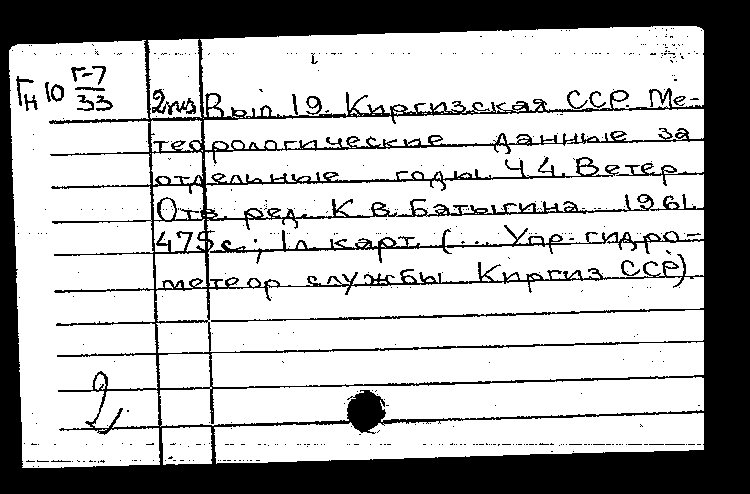 Гн 10 Г-7
33
2 экз Вып. 19. Киргизская ССР. Ме-
теорологические данные за
отдельные годы. Ч 4. Ветер.
Отв. ред. К. В. Батыгина. 1961.
475 с.; 1 л. карт. (... Упр. гидро-
метеор. службы Киргиз ССР)
2